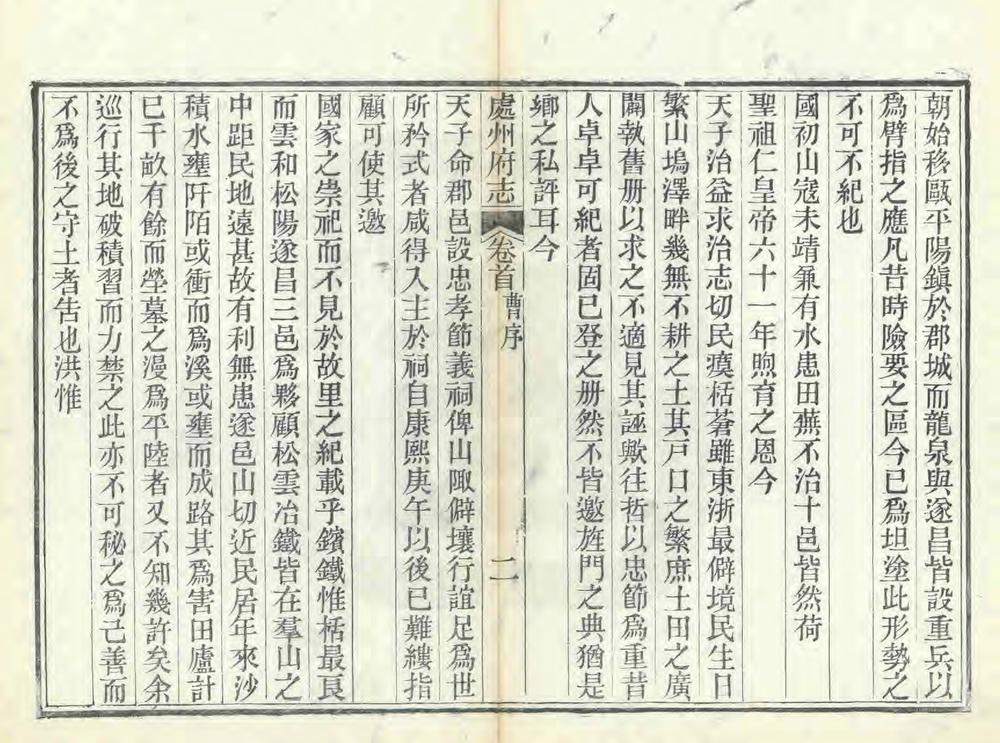 朝始移甌平陽鎮於郡城而龍泉與遂昌皆設重兵以
爲臂指之應凡昔時險要之區今已爲坦塗此形勢之
不可不紀也
國初山寇未靖兼有水患田蕪不治十邑皆然荷
聖祖仁皇帝六十一年煦育之恩今
天子治益求治志切民瘼栝蒼雖東浙最僻境民生日
繁山塢澤畔幾無不耕之土其戸口之繁庶土田之廣
闢執舊册以求之不適見其誣歟往哲以忠節爲重昔
人卓卓可紀者固已登之册然不皆邀旌門之典猶是
鄉之私評耳今
處州府志 卷首 曹序 二
天子命郡邑設忠孝節義祠俾山陬僻壤行誼足爲世
所矜式者咸得入主於祠自康熙庚午以後已難縷指
顧可使其邀
國家之崇祀而不見於故里之紀載乎鑌鐵惟栝最良
而雲和松陽遂昌三邑爲夥顧松雲冶鐵皆在羣山之
中距民地遠甚故有利無患遂邑山切近民居年來沙
積水壅阡陌或衝而爲溪或壅而成路其爲害田廬計
已千畝有餘而塋墓之漫爲平陸者又不知幾許矣余
巡行其地破積習而力禁之此亦不可秘之爲己善而
不爲後之守土者告也洪惟